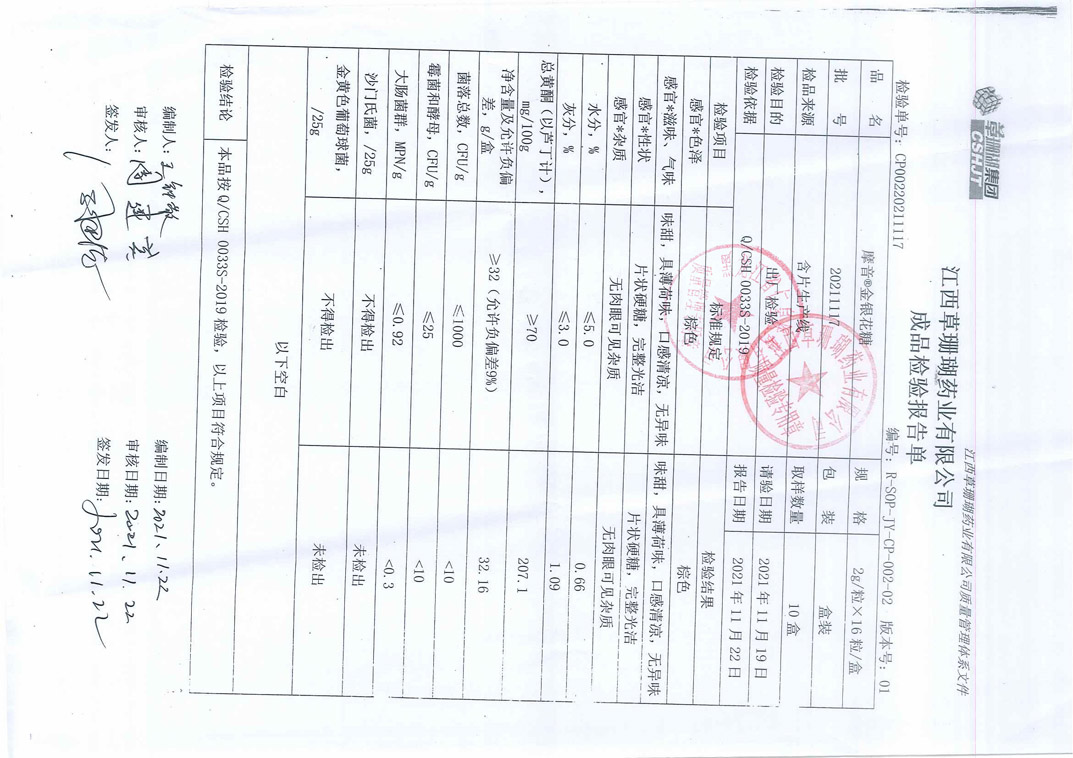 草珊瑚集团
CSHJT
江西草珊瑚药业有限公司质量管理体系文件
江西草珊瑚药业有限公司
成品检验报告单
检验单号：CP00220211117 编号：R-SOP-JY-CP-002-02 版本号：01
品 名 摩音®金银花糖 规 格 2g/粒×16粒/盒
批 号 20211117 包 装 盒装
检品来源 含片生产线 取样数量 10盒
检验目的 出厂检验 请验日期 2021年11月19日
检验依据 Q/CSH 0033S-2019 报告日期 2021年11月22日
检验项目 标准规定 检验结果
感官*色泽 棕色 棕色
感官*滋味、气味 味甜，具薄荷味，口感清凉，无异味 味甜，具薄荷味，口感清凉，无异味
感官*性状 片状硬糖，完整光洁 片状硬糖，完整光洁
感官*杂质 无肉眼可见杂质 无肉眼可见杂质
水分，% ≤5.0 0.66
灰分，% ≤3.0 1.09
总黄酮（以芦丁计），mg/100g ≥70 207.1
净含量及允许负偏差，g/盒 ≥32（允许负偏差9%） 32.16
菌落总数，CFU/g ≤1000 <10
霉菌和酵母，CFU/g ≤25 <10
大肠菌群，MPN/g ≤0.92 <0.3
沙门氏菌，/25g 不得检出 未检出
金黄色葡萄球菌，/25g 不得检出 未检出
以下空白
检验结论 本品按Q/CSH 0033S-2019检验，以上项目符合规定。
编制人： 编制日期：2021.11.22
审核人： 审核日期：2021.11.22
签发人： 签发日期：2021.11.22